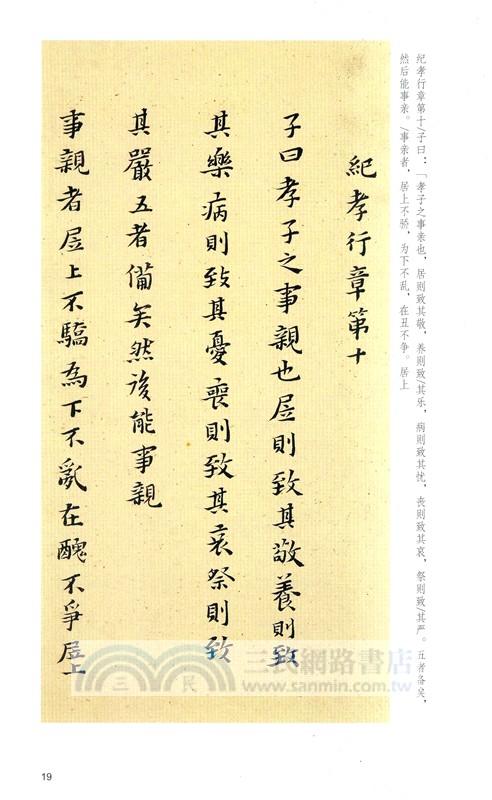 纪孝行章第十/子曰：「孝子之事亲也，居则致其敬，养则致/其乐，病则致其忧，丧则致其哀，祭则致/其严。五者备矣，
然后能事亲。/事亲者，居上不骄，为下不乱，在丑不争。居上
紀孝行章第十
子曰孝子之事親也居則致其敬養則致
其樂病則致其憂喪則致其哀祭則致
其嚴五者備矣然後能事親
事親者居上不驕為下不亂在醜不爭居上
三民網路書店
三民
www.sanmin.com.tw
19